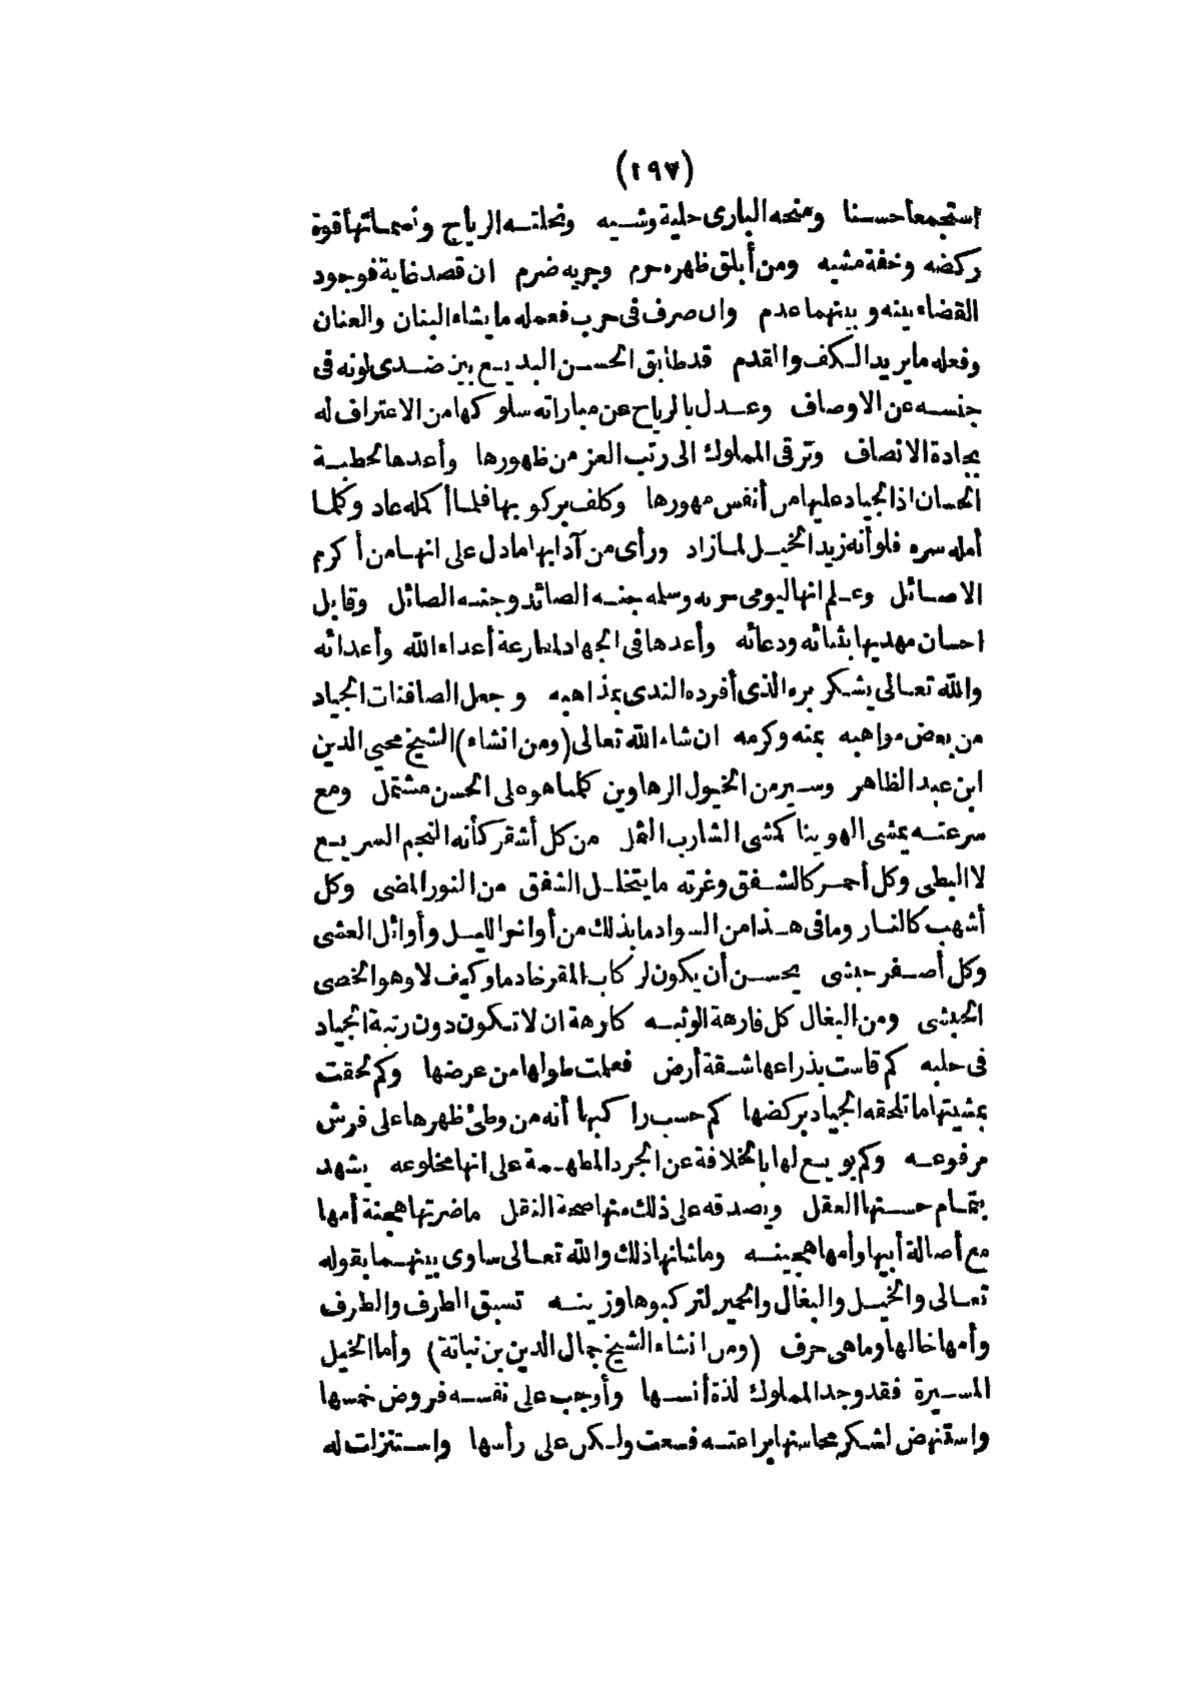 (١٩٧)
استجمعا حسنا ومنحه البارى حلية وشيه ونحلته الرياح ونسماتها قوة
ركضه وخفة مشيه ومن أبلق ظهره حرم وجريه ضرم ان قصد غاية فوجود
القضاء بينه و بينهما عدم وان صرف فى حرب فعمله ما يشاء البنان والعنان
وفعله ما يريد الكف والقدم قد طابق الحسن البديع بين ضدى لونه فى
جنسه عن الاوصاف وعدل بالرياح عن مباراته سلوكها من الاعتراف له
بجادة الانصاف وترقى المملوك الى رتب العز من ظهورها وأعدها لخطبة
الحسان اذ الجياد عليها من أنفس مهورها وكلف بركوبها فلما أكمله عاد وكلما
أمله سره فلو أنه زيد الخيل لما زاد ورأى من آدابها ما دل على انها من أكرم
الاصائل وعلم انها ليومى حربه وسلمه جنه الصائد وجنه الصائل وقابل
احسان مهديها بثنائه ودعائه وأعدها فى الجهاد لمقارعة أعداء الله وأعدائه
والله تعالى يشكر بره الذى أفرده الندى بمذاهبه وجعل الصافنات الجياد
من بعض مواهبه بمنه وكرمه ان شاء الله تعالى (ومن انشاء) الشيخ محيي الدين
ابن عبد الظاهر وسير من الخيول الرهاوين كلما هو على الحسن مشتمل ومع
سرعته يمشى الهوينا كمشى الشارب الثمل من كل أشقر كأنه النجم السريع
لا البطى وكل أحمر كالشفق وغرته ما يتخلل الشفق من النور المضى وكل
أشهب كالنار وما فى هذا من السواد ما بذلك من أواخر الليل وأوائل العشى
وكل أصفر حبشى يحسن أن يكون لركاب المقر خادما وكيف لا وهو الخصى
الحبشى ومن البغال كل فارهة الوثبه كارهة ان لا تكون دون رتبة الجياد
فى حلبه كم قاست بذراعها شقة أرض فعلمت طولها من عرضها وكم لحقت
بمشيتها ما تلحقه الجياد بركضها كم حسب راكبها أنه من وطئ ظهرها على فرش
مرفوعه وكم بويع لها بالخلافة عن الجرد المطهمة على انها مخلوعه يشهد
بتمام حسنها العقل ويصدقه على ذلك منها صحة النقل ما ضرتها هجنة أمها
مع أصالة أبيها وأمها هجينه وما شانها ذلك والله تعالى ساوى بينهما بقوله
تعالى والخيل والبغال والحمير لتركبوها وزينه تسبق الطرف والطرف
وأمها خالها وما هى حرف (ومن انشاء الشيخ جمال الدين بن نباتة) وأما الخيل
المسيرة فقد وجد المملوك لذة أنسها وأوجب على نفسه فروض خمسها
واستنهض لشكر محاسنها براعته فسعت ولكن على رأسها واستنزلت له